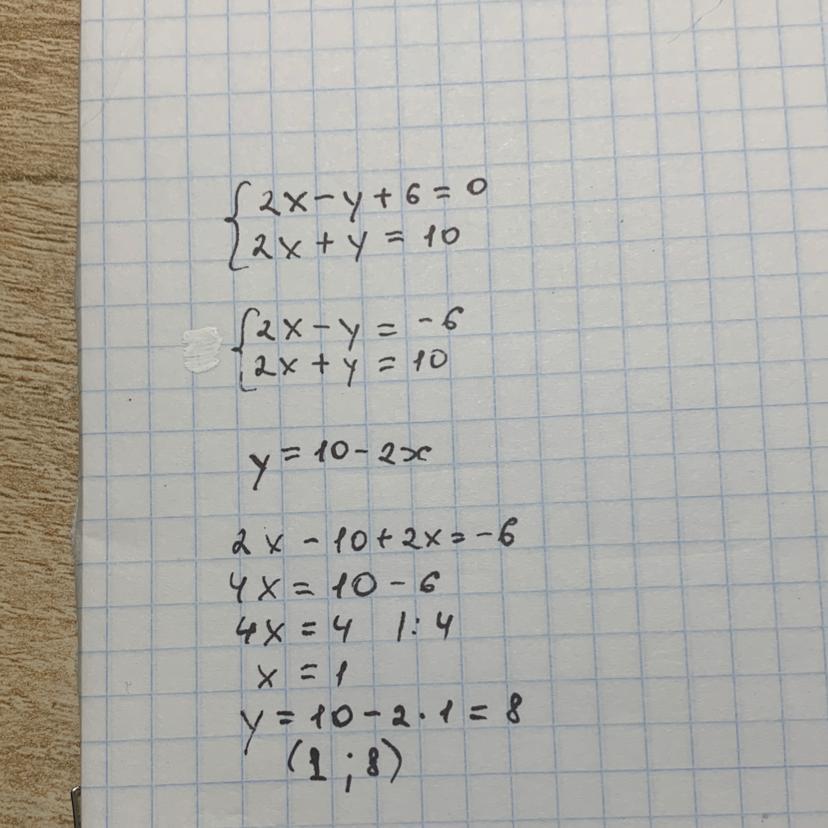 {2x-y+6=0
{2x+y=10
{2x-y=-6
{2x+y=10
y=10-2x
2x-10+2x=-6
4x=10-6
4x=4 |:4
x=1
y=10-2·1=8
(1;8)